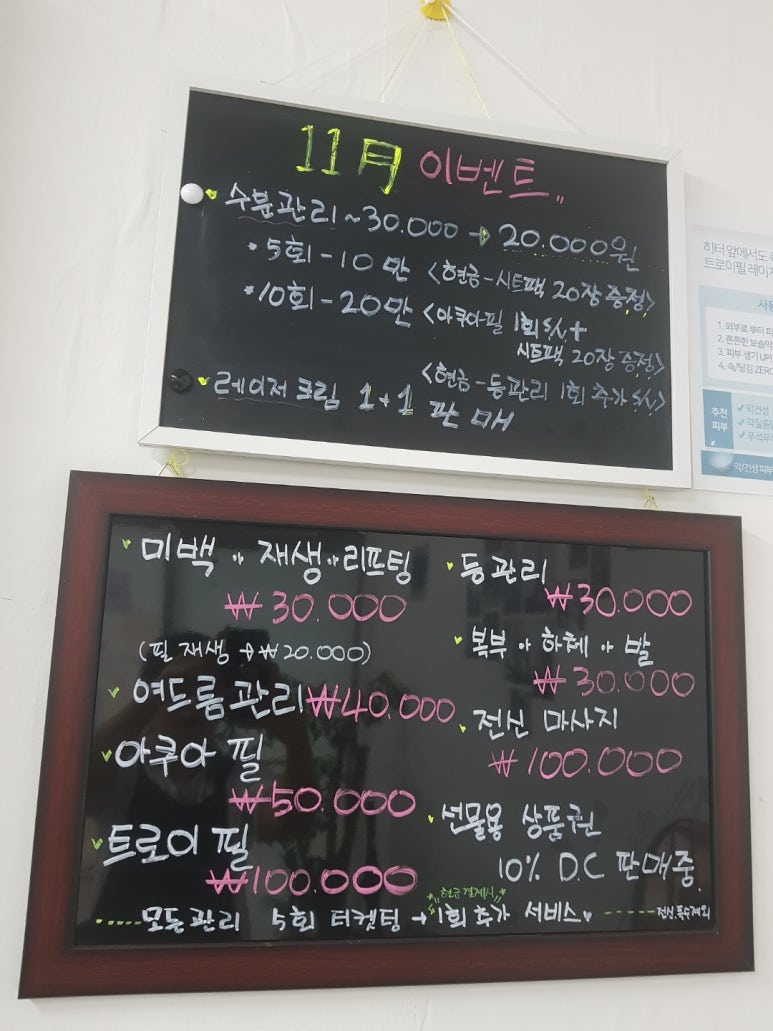 11月 이벤트
수분관리 ~ 30.000 → 20.000원
* 5회 - 10만 <현금-시트팩 20장 증정>
* 10회 - 20만 <아쿠아필 1회 S.V+
시트팩 20장 증정>
<현금-등관리 1회 추가 S.V>
레이저크림 1+1 판매
히터 앞에서도
트로이필 레이저
1. 외부로 부터
2. 쫀쫀한 보습막
3. 피부 생기 UP!
4. 속당김 ZERO
추천
피부
✓ 악건성
✓ 각질
악/건성 피부
미백 · 재생 · 리프팅
₩30.000
(필 재생 → ₩20.000)
여드름관리 ₩40.000
아쿠아 필
₩50.000
트로이 필
₩100.000
등관리
₩30.000
복부 · 하체 · 발
₩30.000
전신 마사지
₩100.000
선물용 상품권
10% D.C 판매중.
현금결제시
모든관리 5회 티켓팅 → 1회 추가 서비스♥ ------ 전신.특수제외